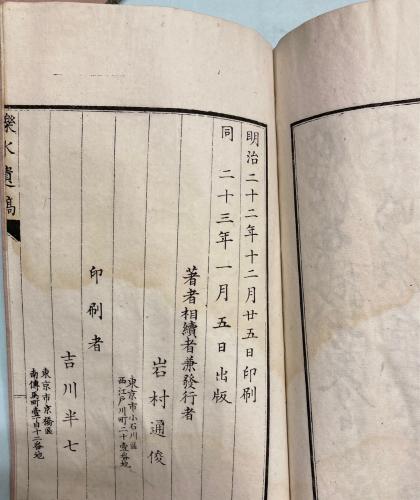 明治二十二年十二月廿五日印刷
同 二十三年一月五日出版
著者相續者兼發行者
岩村通俊
東京市小石川區
西江戸川町二十壹番地
印刷者
吉川半七
東京市京橋區
南傳馬町壹丁目十二番地
樂水遺稿